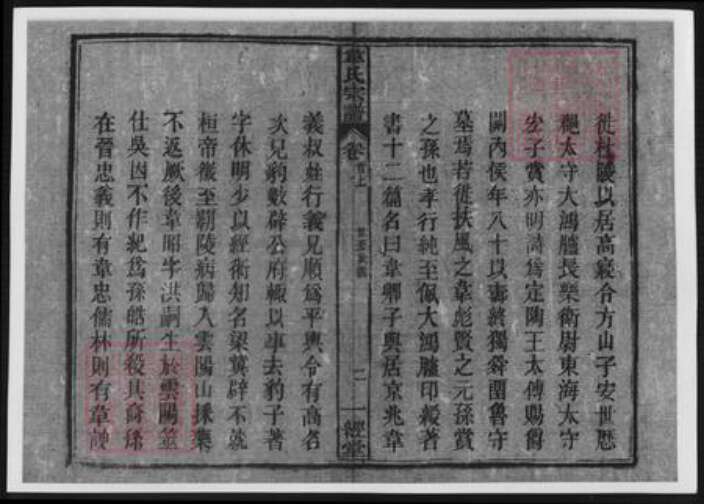 徙杜陵以居高寢令方山子安世歷
太守大鴻臚長樂衛尉東海太守
宏子賞亦明詩爲定陶王太傅賜爵
關內侯年八十以壽終獨舜留魯守
墓焉若從扶風之韋彪賢之元孫賞
之孫也孝行純至佩大鴻臚印綬著
書十二篇名曰韋卿子與居京兆韋
韋氏宗譜 卷首上 二 一經堂
義叔姓行義兄順爲平輿令有高名
次兄豹數辟公府輒以事去豹子著
字休明少以經術知名梁冀辟不就
桓帝徵至霸陵病歸入雲陽山採藥
不返厥後韋昭字洪嗣生於雲陽並
仕吳因不作紀爲孫皓所殺其裔
在晉忠義則有韋忠儒林則有韋謏